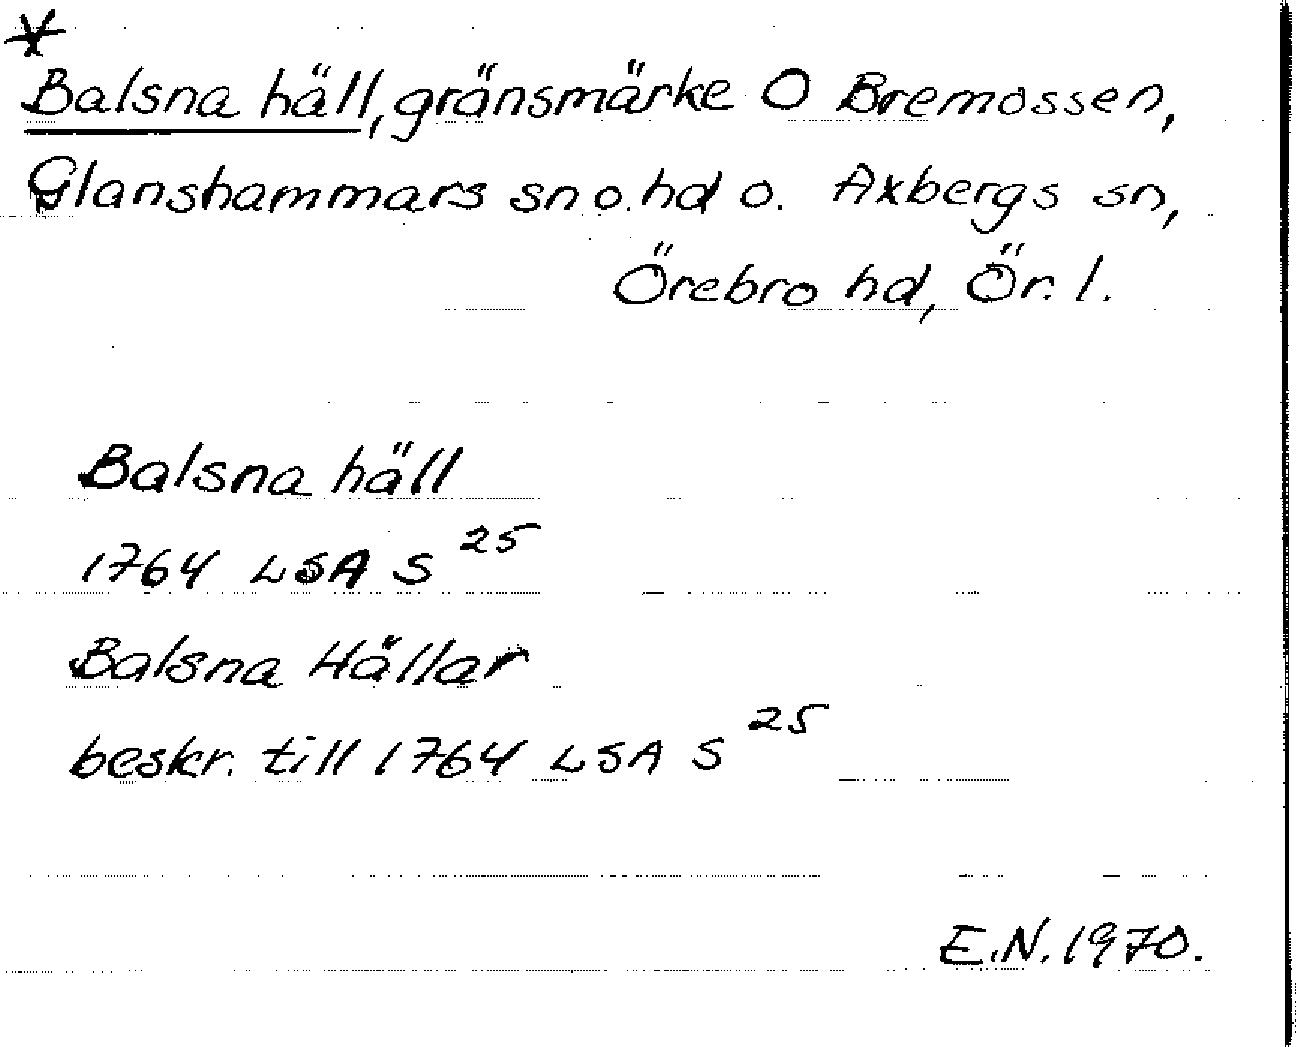 *
Balsna häll, gränsmärke O Bremossen,
Glanshammars sn o. hd o. Axbergs sn,
Örebro hd, Ör. l.
Balsna häll
1764 LSA S 25
Balsna Hällar
beskr. till 1764 LSA S 25
E.N. 1970.